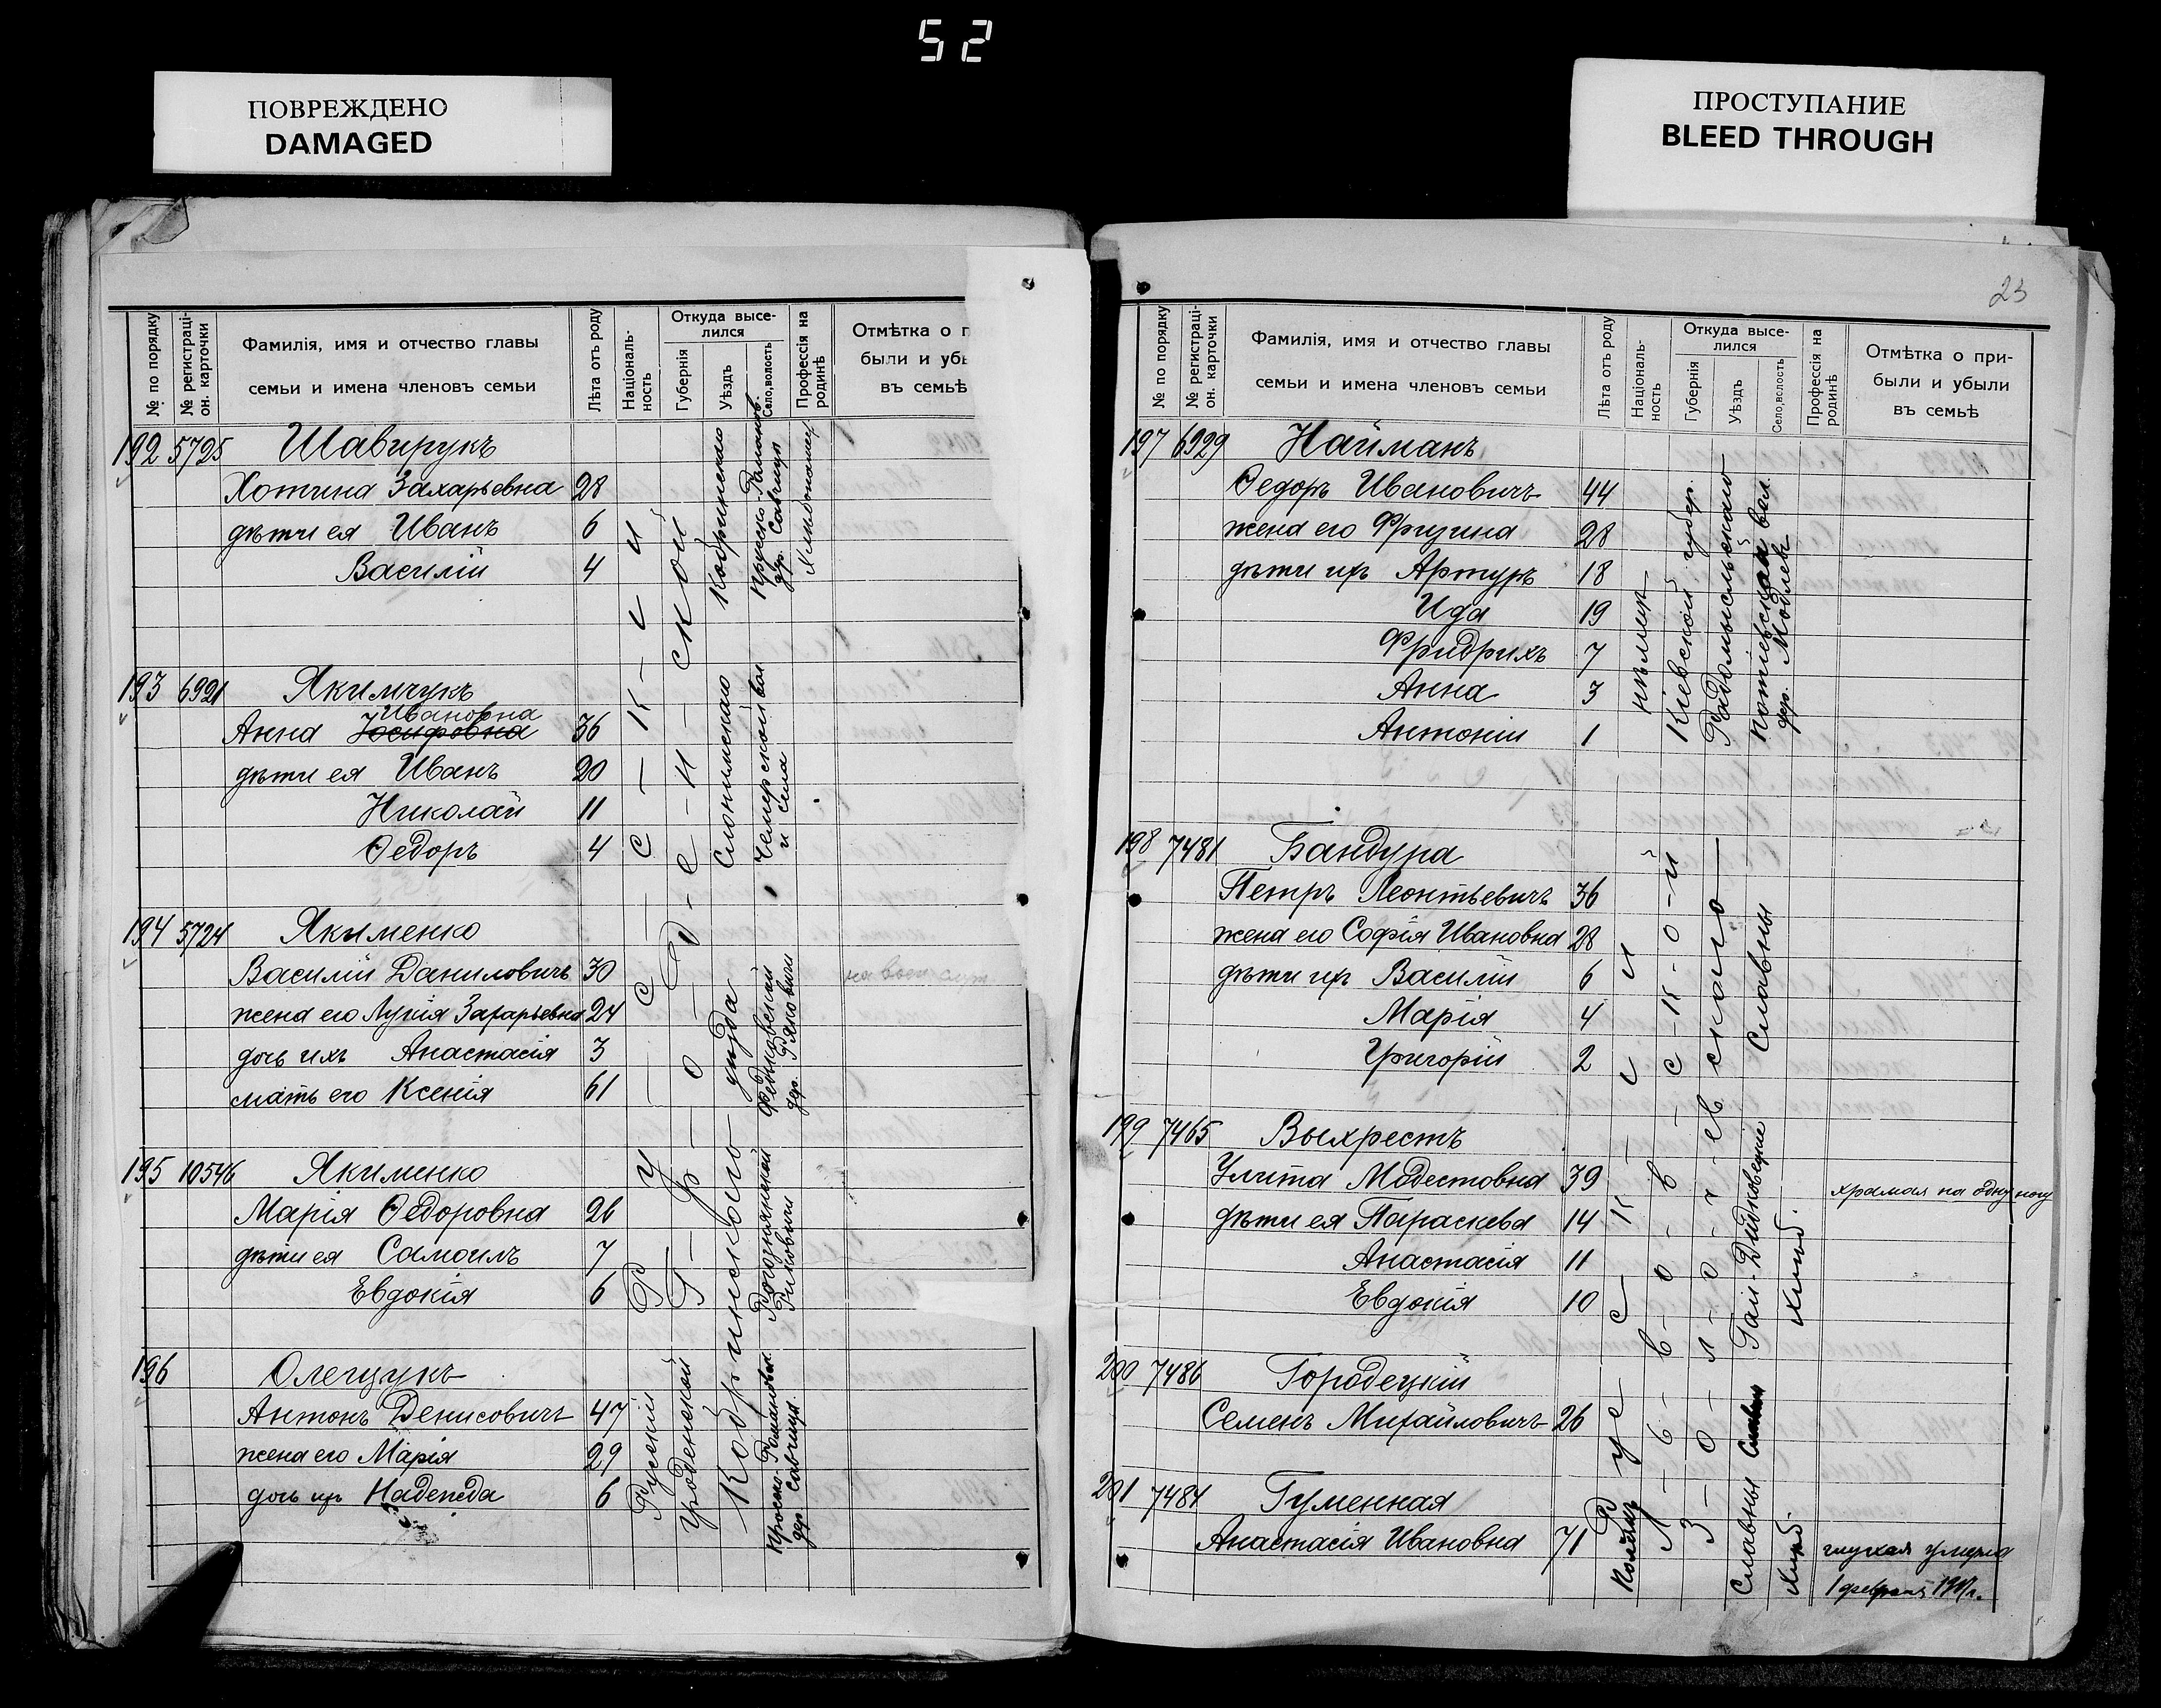 52
ПОВРЕЖДЕНО
DAMAGED
ПРОСТУПАНИЕ
BLEED THROUGH
№ по порядку
№ регистраці-
он. карточки
Фамилія, имя и отчество главы
семьи и имена членовъ семьи
Лѣта отъ роду
Національ-
ность
Откуда высе-
лился
Губернія
Уѣздъ
Село, волость
Профессія на
родинѣ
Отмѣтка о п
были и убы
въ семьѣ
192 5725 Шавирукъ
Хотина Захарьевна 28
дѣти ея Иванъ 6
Василій 4
193 6991 Якимчукъ
Ивановна
Анна Іосифовна 36
дѣти ея Иванъ 20
Николай 11
Ѳедоръ 4
194 5724 Якименко
Василій Даниловичъ 30
жена его Лукія Захарьевна 24
дочь ихъ Анастасія 3
мать его Ксенія 61
195 10546 Якименко
Марія Ѳедоровна 26
дѣти ея Самоилъ 7
Евдокія 6
196 Олещукъ
Антонъ Денисовичъ 47
жена его Марія 29
дочь ихъ Надежда 6
Р у с с к и
Г р о д н е н с к о й
Кобринскаго
дер. Савчицы
Слонимскаго
Чемерской вол
и села
Кобринского уезда
дер.
Русскій
Гродненской
дер. Савчицы
23
№ по порядку
№ регистраці-
он. карточки
Фамилія, имя и отчество главы
семьи и имена членовъ семьи
Лѣта отъ роду
Національ-
ность
Откуда высе-
лился
Губернія
Уѣздъ
Село, волость
Профессія на
родинѣ
Отмѣтка о при-
были и убыли
въ семьѣ
197 6929 Найманъ
Ѳедоръ Ивановичъ 44
жена его Фризина 28
дѣти ихъ Артуръ 18
Ида 19
Фридрихъ 7
Анна 3
Антоній 1
Кіевской губер.
Радомысльскаго
Потіевской вол.
198 7481 Бандура
Петръ Леонтьевичъ 36
жена его Софія Ивановна 28
дѣти ихъ Василій 6
Марія 4
Григорій 2
199 7465 Выхрестъ
Улита Модестовна 39 храмая на одну ногу
дѣти ея Параскева 14
Анастасія 11
Евдокія 10
200 7486 Городецкій
Семенъ Михайловичъ 26
201 7484 Гуменная
Анастасія Ивановна 71 глухая умерла
1 февраля 1917 г.
Р у с с к и
Л-ь-в-о-в-с-к-о-й
З-о-л-о-ч-ев скаго
Славны
Гаи-Дидковецкие
Хлѣб.
Славны
Хлѣб.